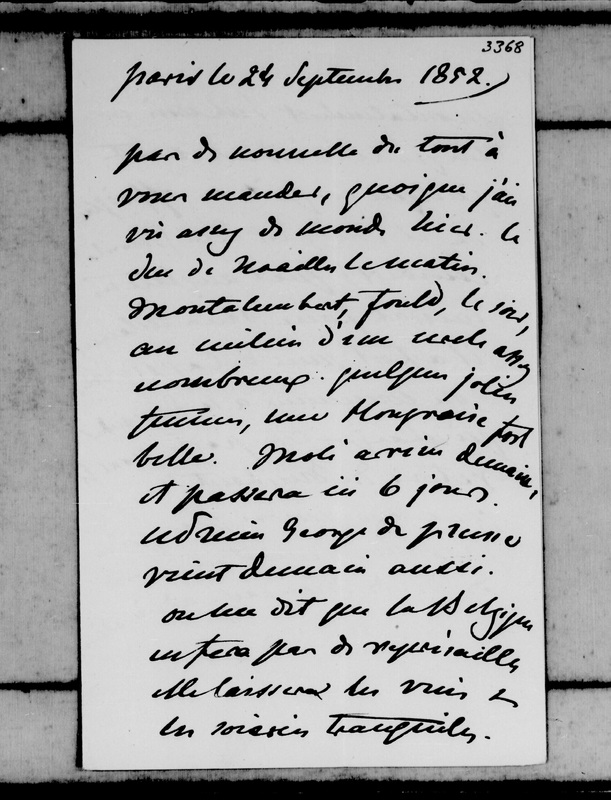 3368
Paris le 24 Septembre 1852.
pas de nouvelle du tout à
vous mander, quoique j'ai
vu assez de monde hier. le
duc de Noailles le matin.
Montalembert, Fould, le soir,
au milieu d'un cercle assez
nombreux. quelques jolies
femmes, une Hongroise fort
belle. Molé arrive demain,
et passera ici 6 jours.
George de prusse
vient demain aussi.
on me dit que la Belgique
ne fera pas de représailles
elle laissera les vins &
les soieries tranquilles.